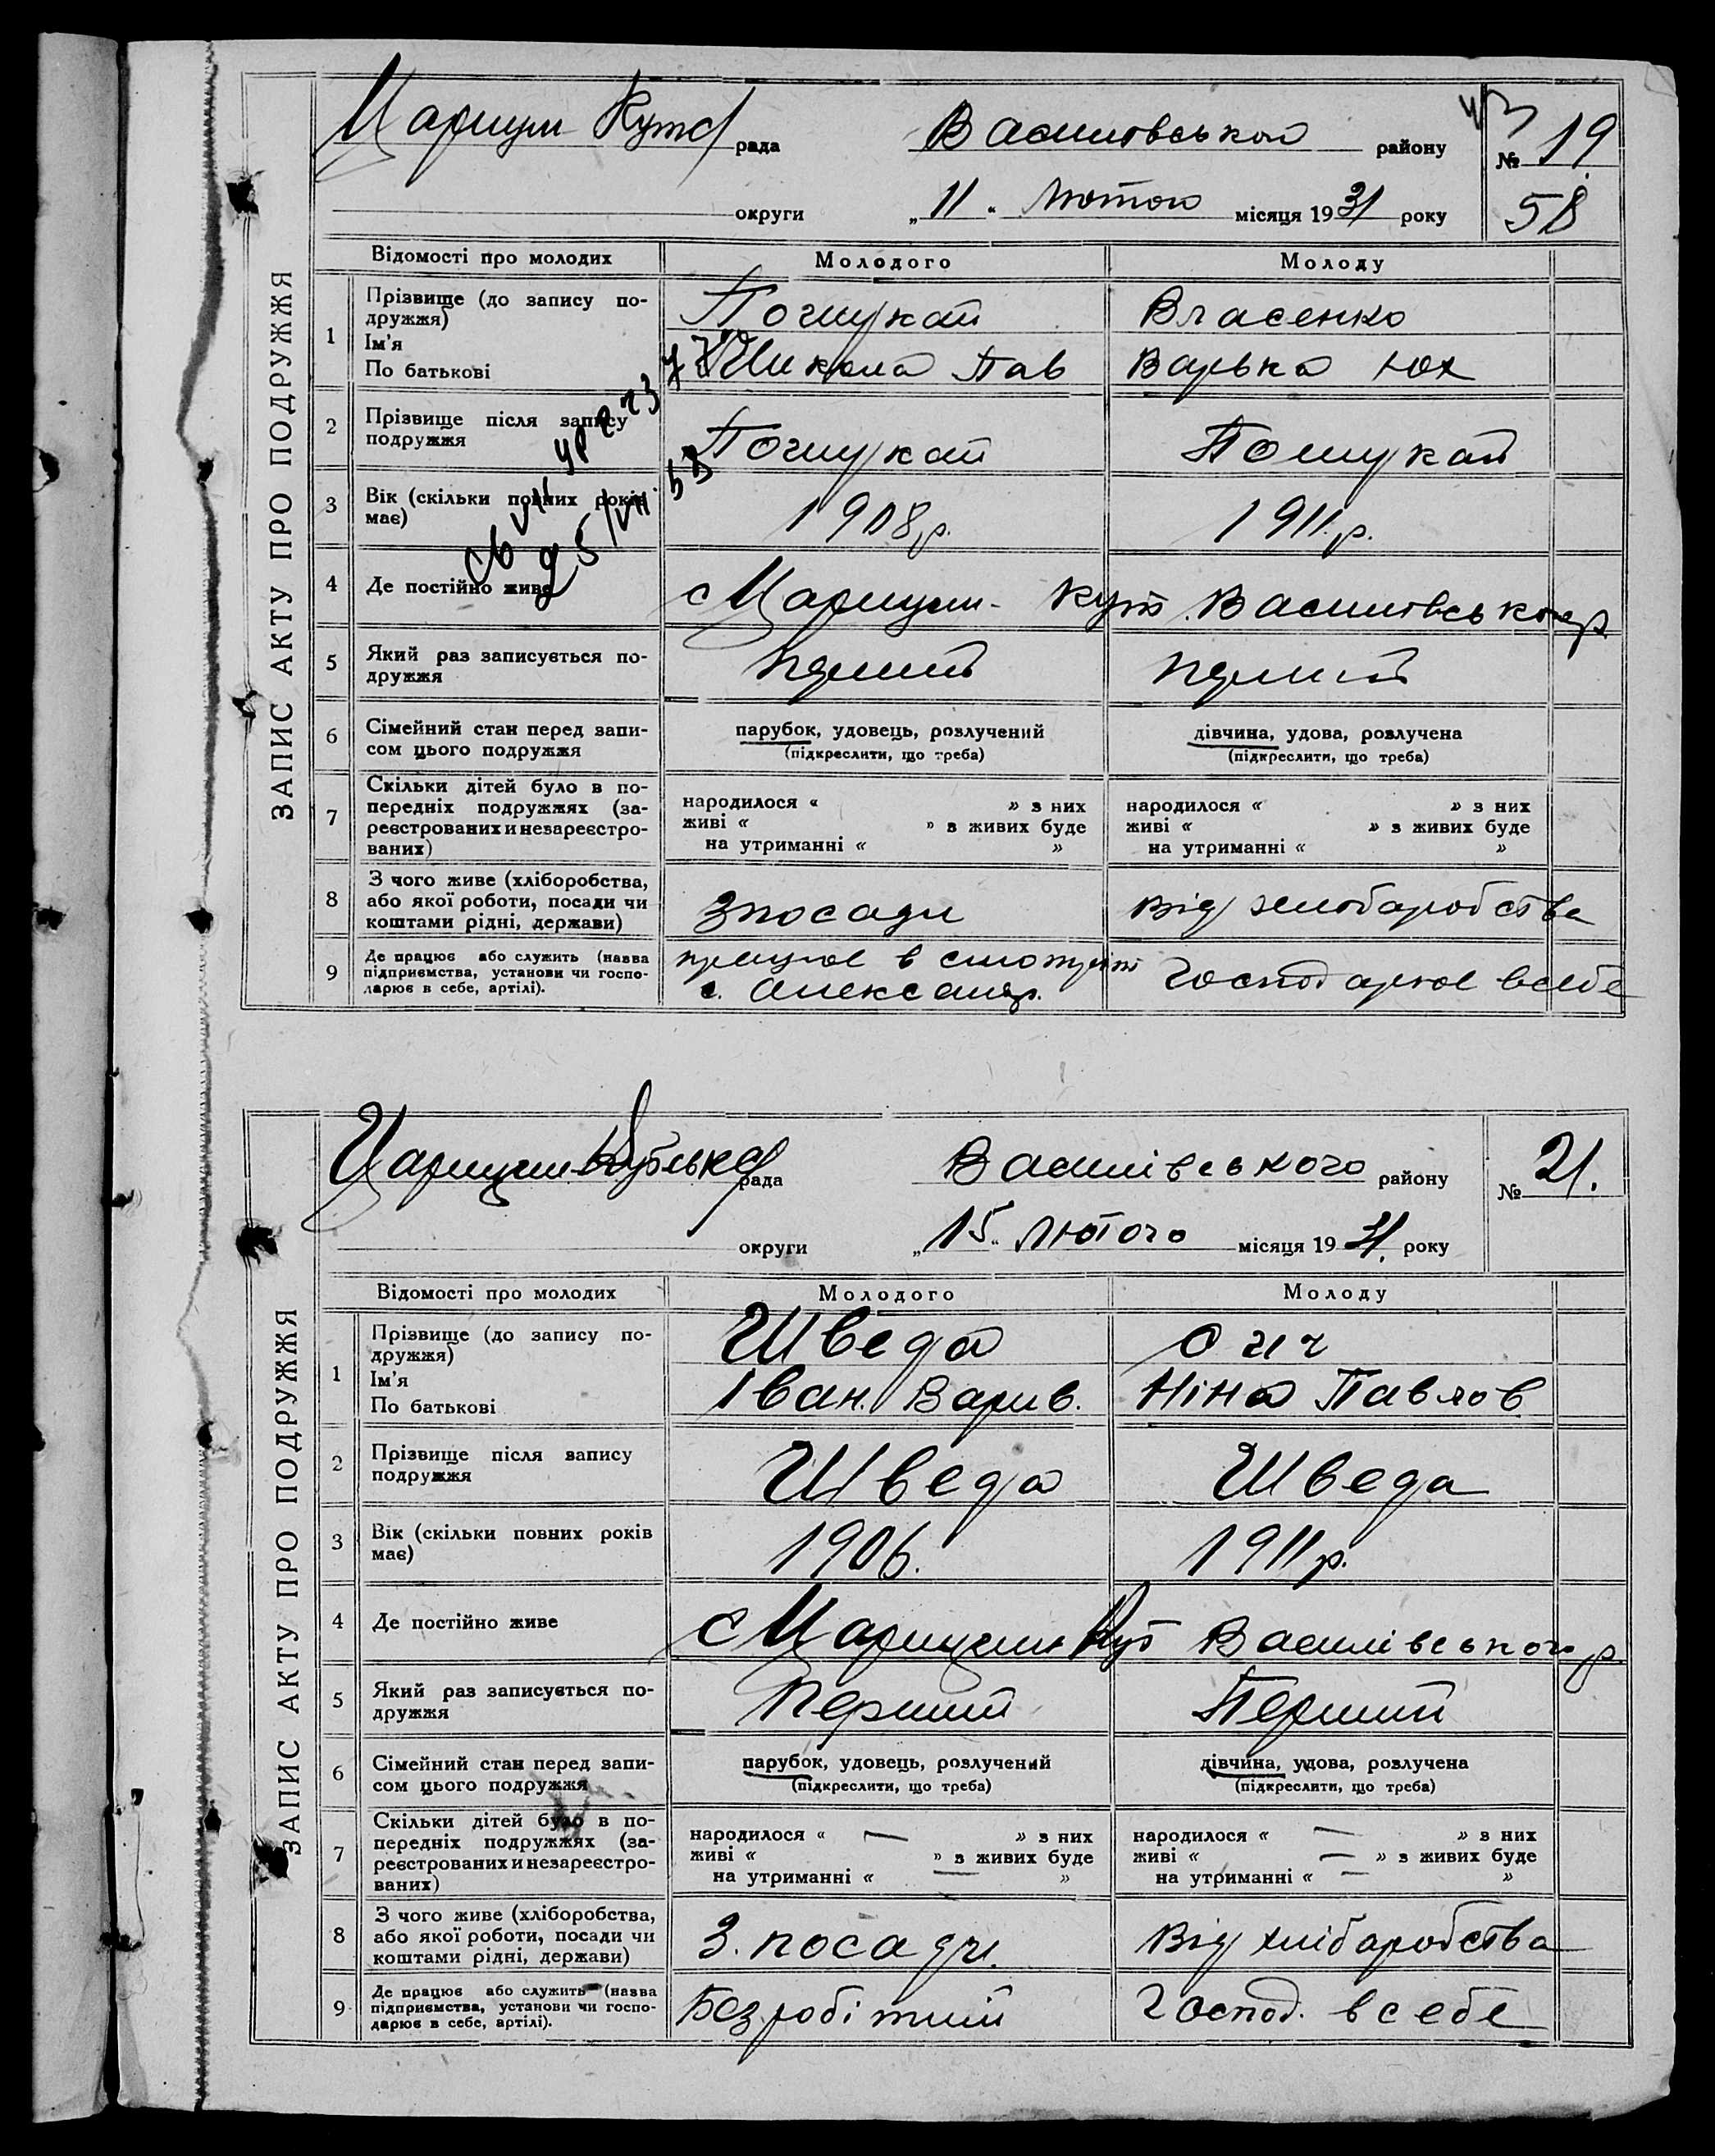 ЗАПИС АКТУ ПРО ПОДРУЖЖЯ
Царицин Кутс рада Василовської району № 19
58
округи „11“ Лютого місяця 1931 року
Відомості про молодих Молодого Молоду
1 Прізвище (до запису по-
дружжя)
Ім'я
По батькові
Пошукай Власенко
Микола Пав Варька Юх
2 Прізвище після запису
подружжя
Пошукай Пошукай
3 Вік (скільки повних років
має)
1908р. 1911.р.
4 Де постійно живе
с Царицин-Кут Василовськ р
5 Який раз записується по-
дружжя
перший перший
6 Сімейний стан перед запи-
сом цього подружжя
парубок, удовець, розлучений дівчина, удова, розлучена
(підкреслити, що треба) (підкреслити, що треба)
7 Скільки дітей було в по-
передніх подружжях (за-
реєстрованих и незареєстро-
ваних)
народилося « » з них народилося « » з них
живі « » з живих буде живі « » з живих буде
на утриманні « » на утриманні « »
8 З чого живе (хліборобства,
або якої роботи, посади чи
коштами рідні, держави)
Зпосади від хлібаробства
9 Де працює або служить (назва
підприємства, установи чи госпо-
дарює в себе, артілі).
працює в с. Александр. Господарює всебе
ЗАПИС АКТУ ПРО ПОДРУЖЖЯ
Царицин-Кутська рада Василівського району № 21.
округи „15“ Лютого місяця 1931. року
Відомості про молодих Молодого Молоду
1 Прізвище (до запису по-
дружжя)
Ім'я
По батькові
Шведа
Іван. Варив. Ніна Павлов
2 Прізвище після запису
подружжя
Шведа Шведа
3 Вік (скільки повних років
має)
1906. 1911р.
4 Де постійно живе
с Царицин Кут Василівського р.
5 Який раз записується по-
дружжя
Перший Перший
6 Сімейний стан перед запи-
сом цього подружжя
парубок, удовець, розлучений дівчина, удова, розлучена
(підкреслити, що треба) (підкреслити, що треба)
7 Скільки дітей було в по-
передніх подружжях (за-
реєстрованих и незареєстро-
ваних)
народилося « — » з них народилося « — » з них
живі « » з живих буде живі « — » з живих буде
на утриманні « — » на утриманні « — »
8 З чого живе (хліборобства,
або якої роботи, посади чи
коштами рідні, держави)
З. посади. Від хлібаробства
9 Де працює або служить (назва
підприємства, установи чи госпо-
дарює в себе, артілі).
Безробітний Господ. всебе